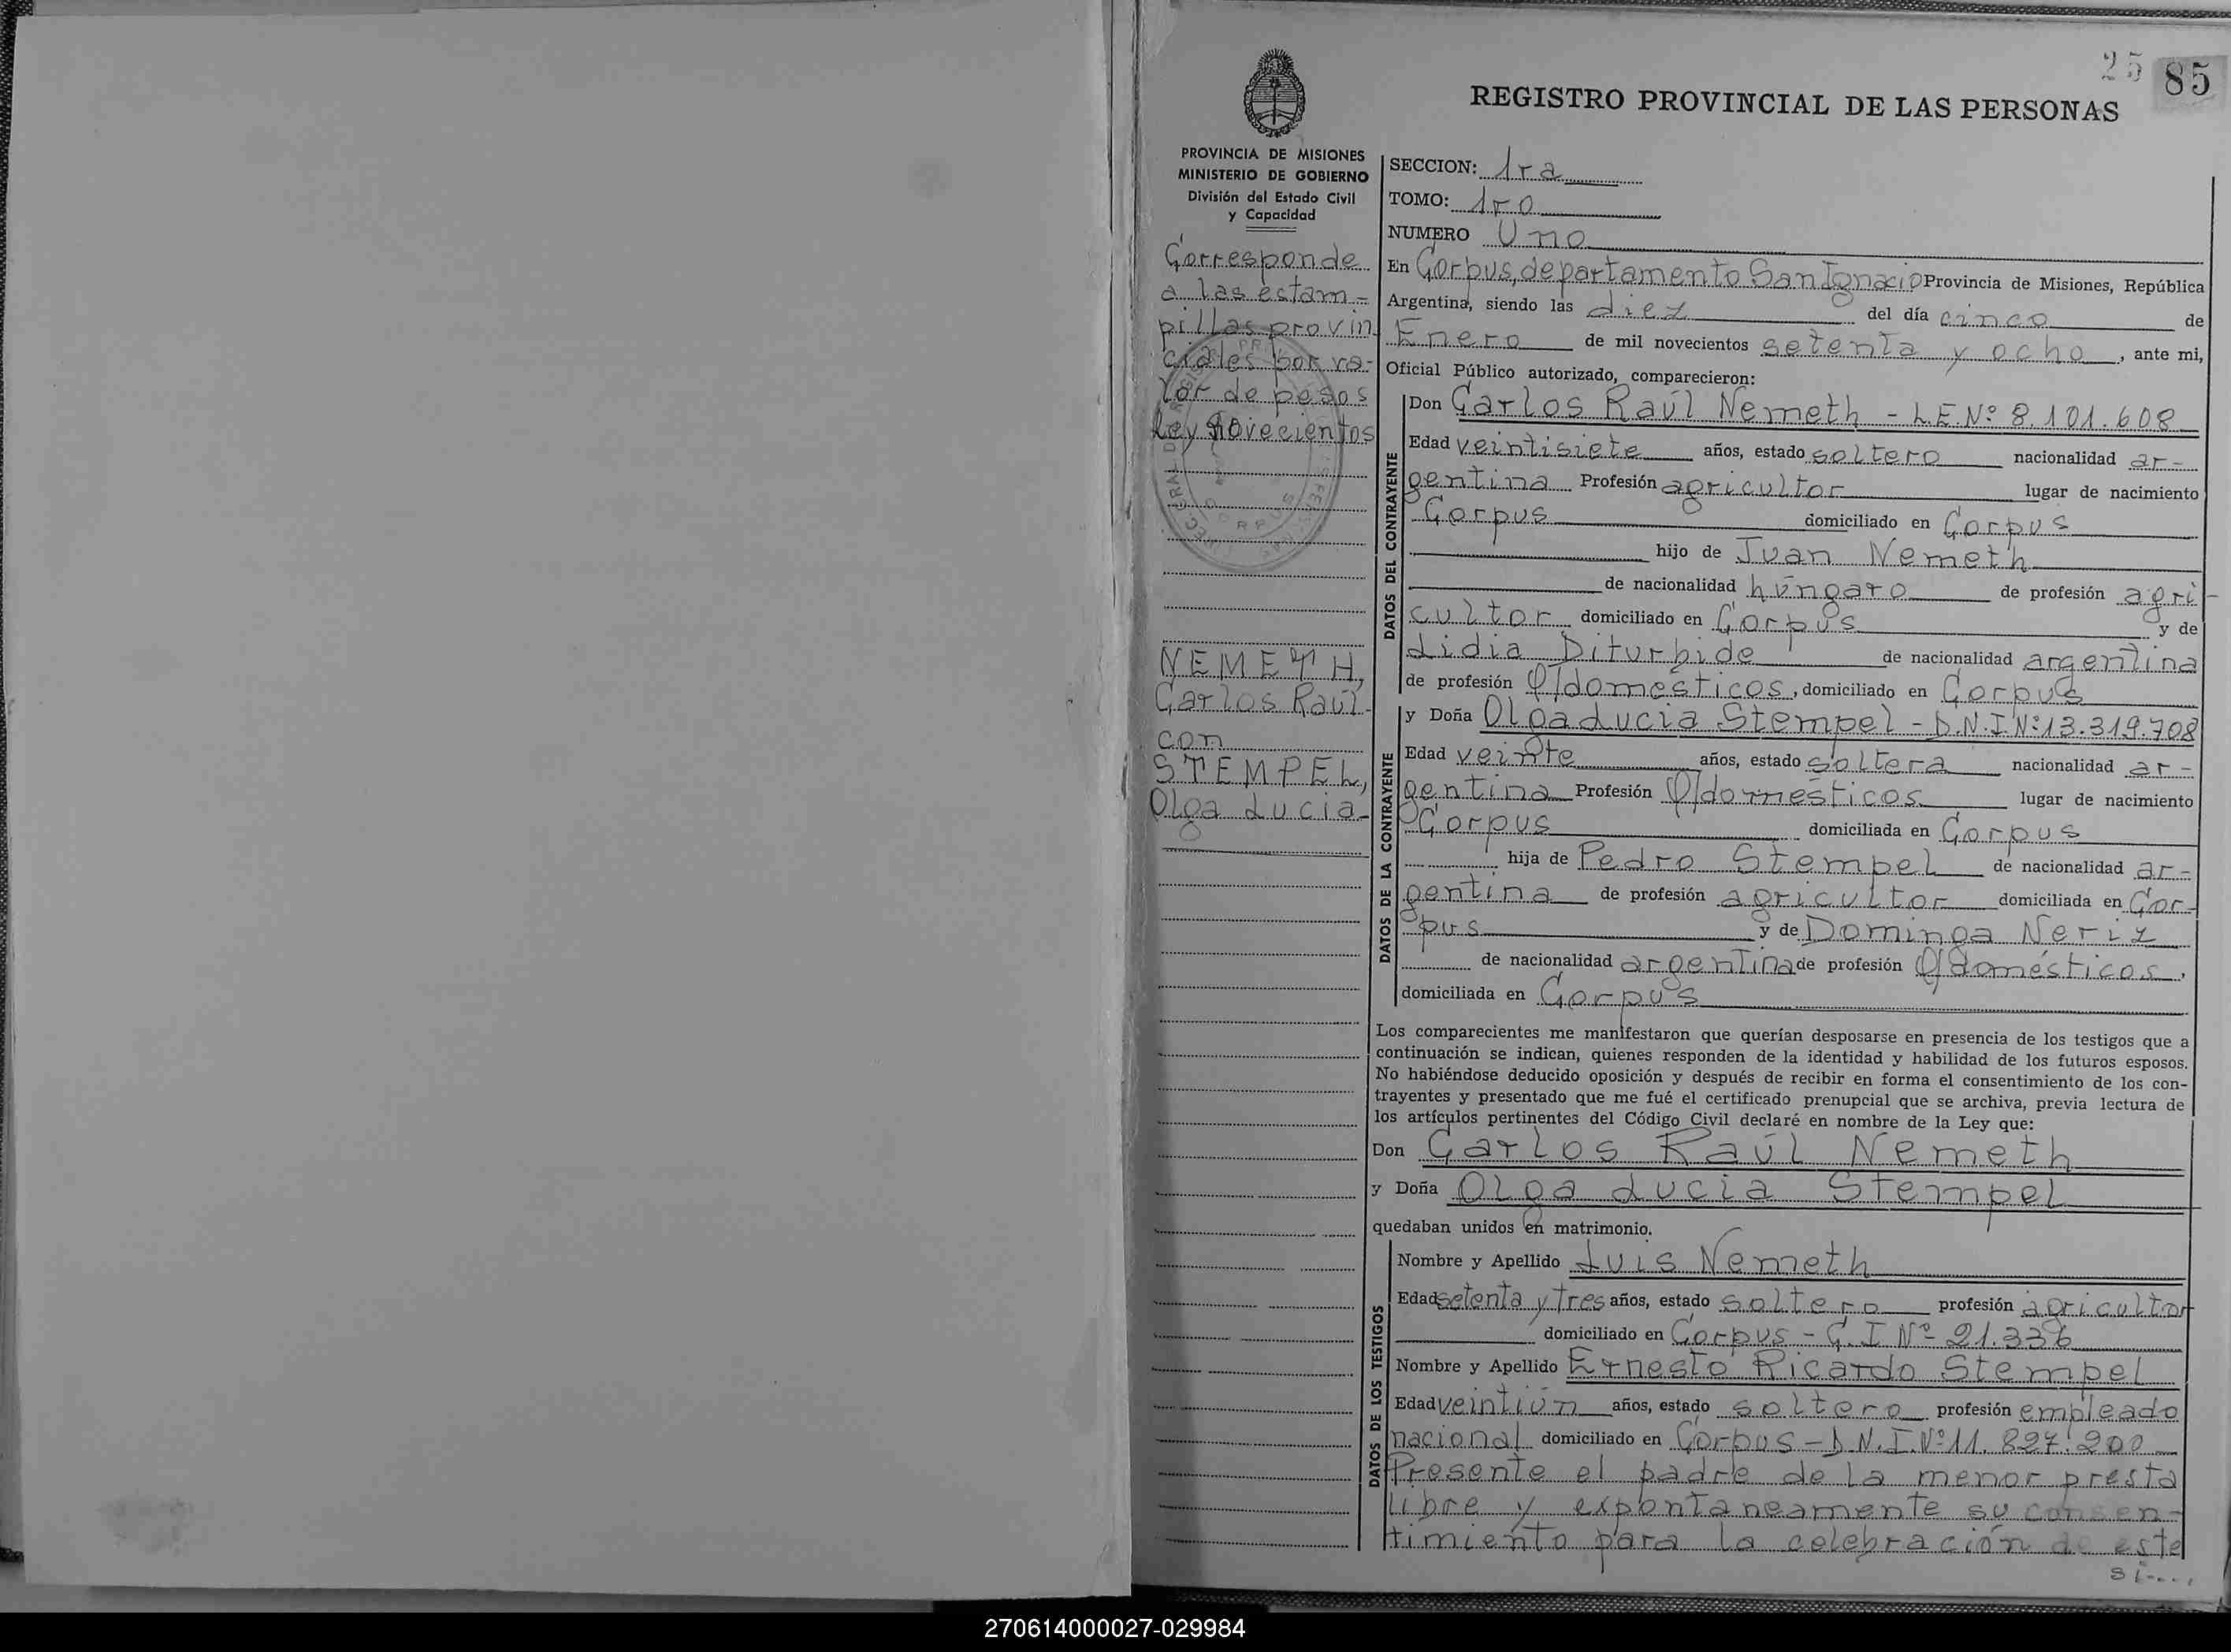 25 85
REGISTRO PROVINCIAL DE LAS PERSONAS
PROVINCIA DE MISIONES
MINISTERIO DE GOBIERNO
División del Estado Civil
y Capacidad
Corresponde
a las estam-
pillas provin
ciales por va-
lor de pesos
Ley novecientos
NEMETH,
Carlos Raúl
con
STEMPEL,
Olga Lucia
SECCION: 1ra
TOMO: 1ro
NUMERO Uno
En Corpus, departamento San Ignacio Provincia de Misiones, República
Argentina, siendo las diez del día cinco de
Enero de mil novecientos setenta y ocho, ante mi,
Oficial Público autorizado, comparecieron:
DATOS DEL CONTRAYENTE
Don Carlos Raúl Nemeth - L.E.Nº 8.101.608
Edad veintisiete años, estado soltero nacionalidad ar-
gentina Profesión agricultor lugar de nacimiento
Corpus domiciliado en Corpus
hijo de Juan Nemeth
de nacionalidad húngaro de profesión agri-
cultor domiciliado en Corpus y de
Lidia Diturbide de nacionalidad argentina
de profesión Q/domésticos, domiciliado en Corpus
DATOS DE LA CONTRAYENTE
y Doña Olga Lucia Stempel - D.N.I.Nº 13.319.708
Edad veinte años, estado soltera nacionalidad ar-
gentina Profesión Q/domésticos lugar de nacimiento
Corpus domiciliada en Corpus
hija de Pedro Stempel de nacionalidad ar-
gentina de profesión agricultor domiciliada en Cor-
pus y de Dominga Neriz
de nacionalidad argentina de profesión Q/domésticos,
domiciliada en Corpus
Los comparecientes me manifestaron que querían desposarse en presencia de los testigos que a
continuación se indican, quienes responden de la identidad y habilidad de los futuros esposos.
No habiéndose deducido oposición y después de recibir en forma el consentimiento de los con-
trayentes y presentado que me fué el certificado prenupcial que se archiva, previa lectura de
los artículos pertinentes del Código Civil declaré en nombre de la Ley que:
Don Carlos Raúl Nemeth
y Doña Olga Lucia Stempel
quedaban unidos en matrimonio.
DATOS DE LOS TESTIGOS
Nombre y Apellido Luis Nemeth
Edad setenta y tres años, estado soltero profesión agricultor
domiciliado en Corpus - C.I Nº 21.336
Nombre y Apellido Ernesto Ricardo Stempel
Edad veintiún años, estado soltero profesión empleado
nacional domiciliado en Corpus - D.N.I.Nº 11.827.200
Presente el padre de la menor presta
libre y expontaneamente su consen-
timiento para la celebración de este
270614000027-029984